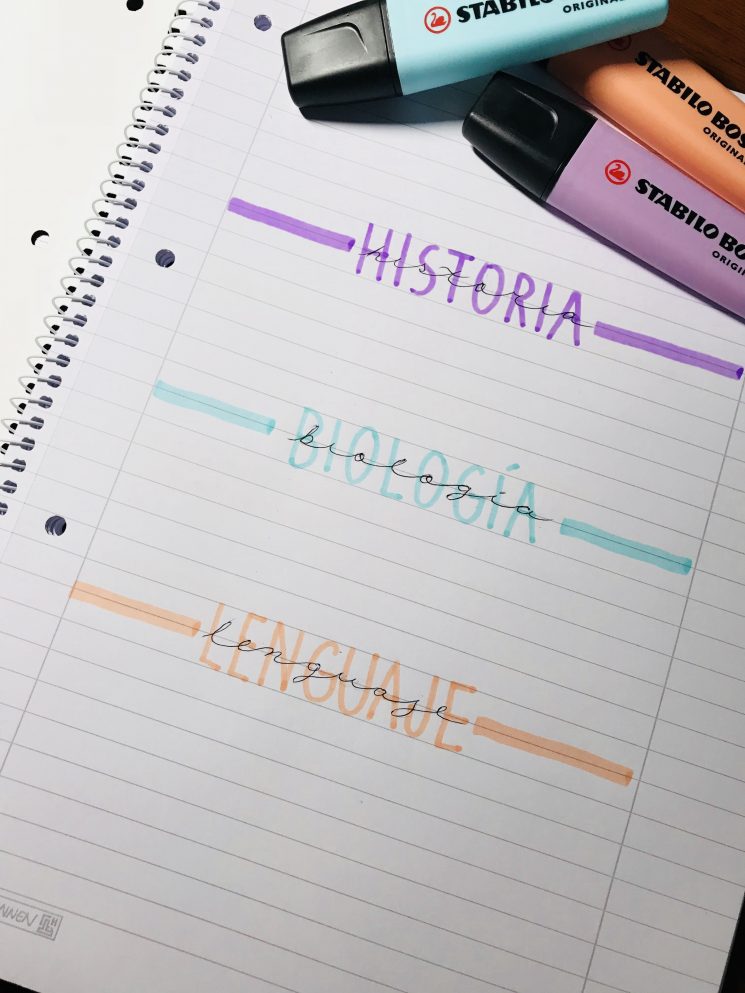 STABILO
ORIGINAL
STABILO BOSS
ORIGINAL
STABILO BOSS
ORIGINAL
HISTORIA
historia
BIOLOGÍA
biología
LENGUAJE
lenguaje